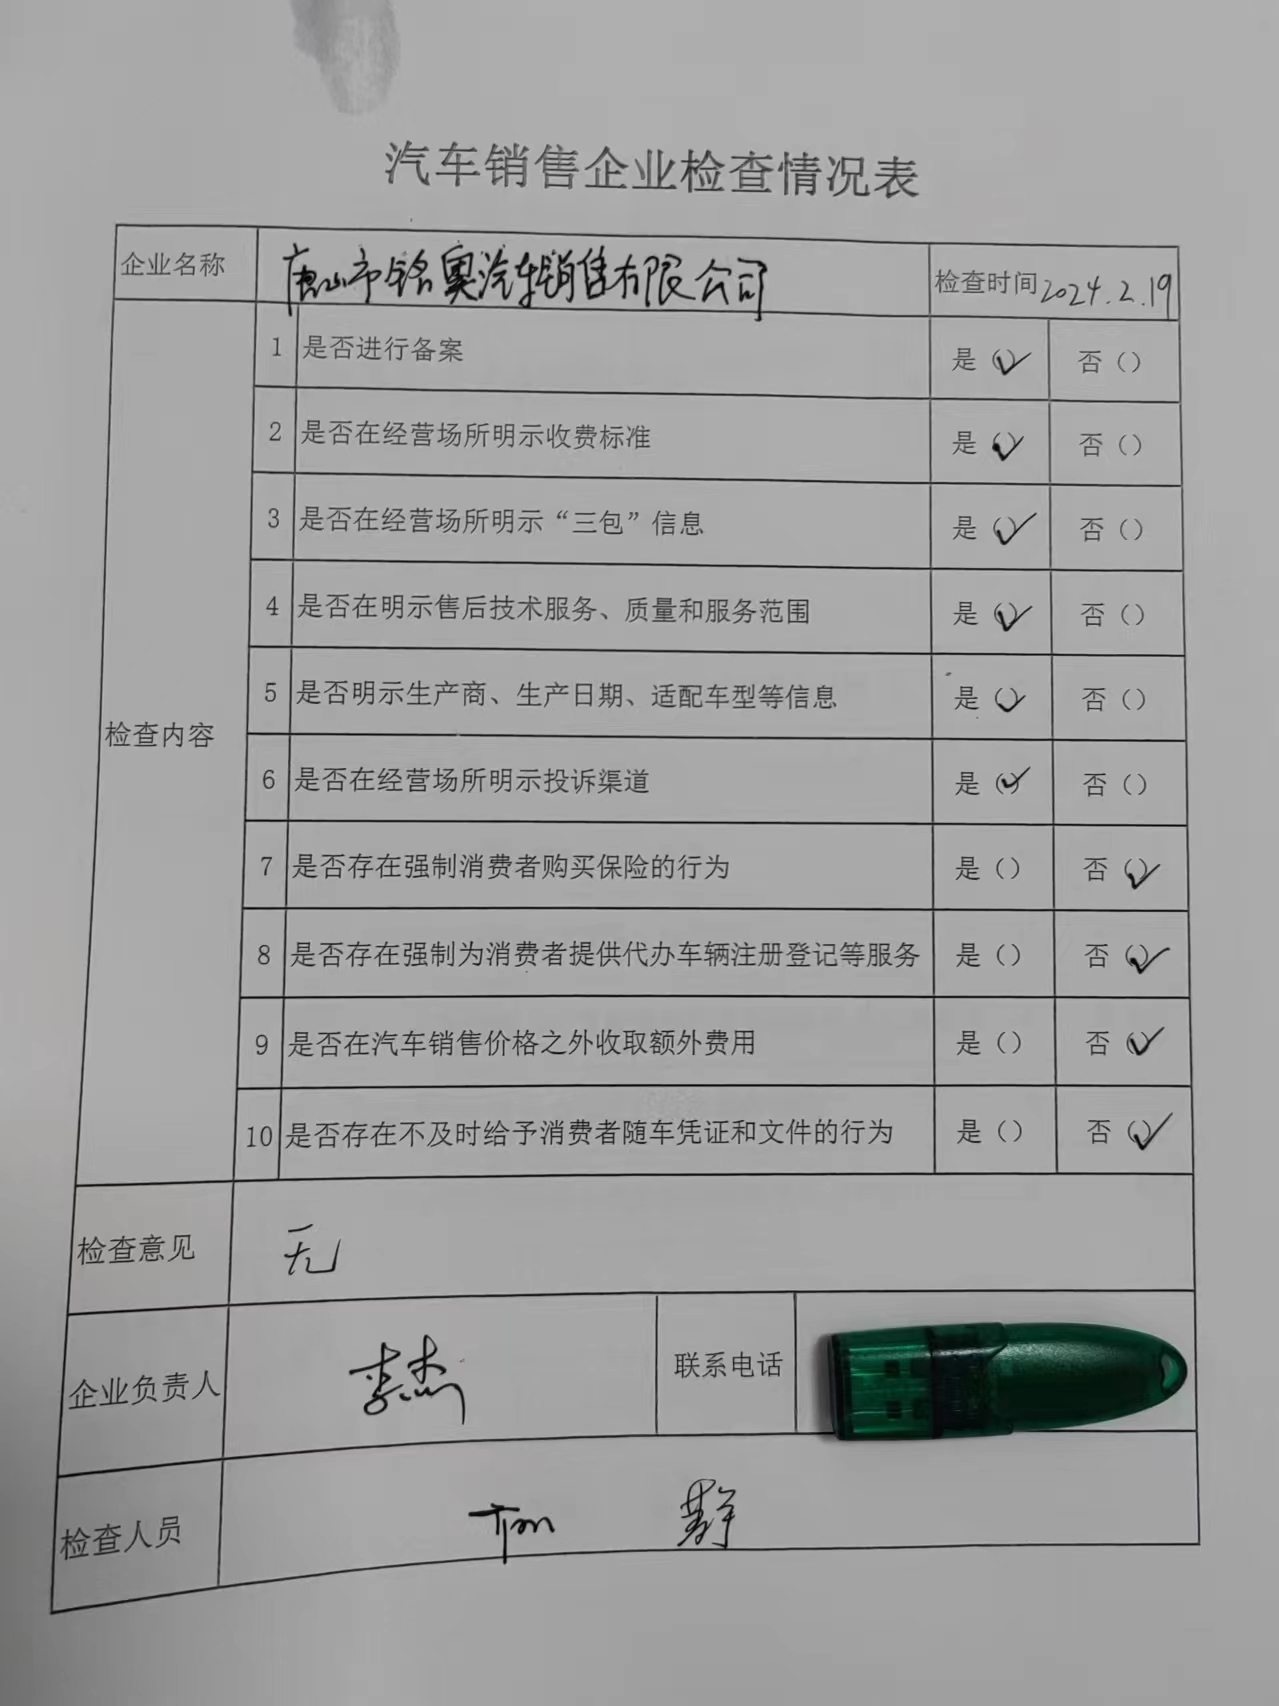 汽车销售企业检查情况表
企业名称 唐山市铭奥汽车销售有限公司 检查时间 2024.2.19
检查内容
1 是否进行备案 是(✓) 否()
2 是否在经营场所明示收费标准 是(✓) 否()
3 是否在经营场所明示“三包”信息 是(✓) 否()
4 是否在明示售后技术服务、质量和服务范围 是(✓) 否()
5 是否明示生产商、生产日期、适配车型等信息 是(✓) 否()
6 是否在经营场所明示投诉渠道 是(✓) 否()
7 是否存在强制消费者购买保险的行为 是() 否(✓)
8 是否存在强制为消费者提供代办车辆注册登记等服务 是() 否(✓)
9 是否在汽车销售价格之外收取额外费用 是() 否(✓)
10 是否存在不及时给予消费者随车凭证和文件的行为 是() 否(✓)
检查意见 无
企业负责人 李杰 联系电话
检查人员